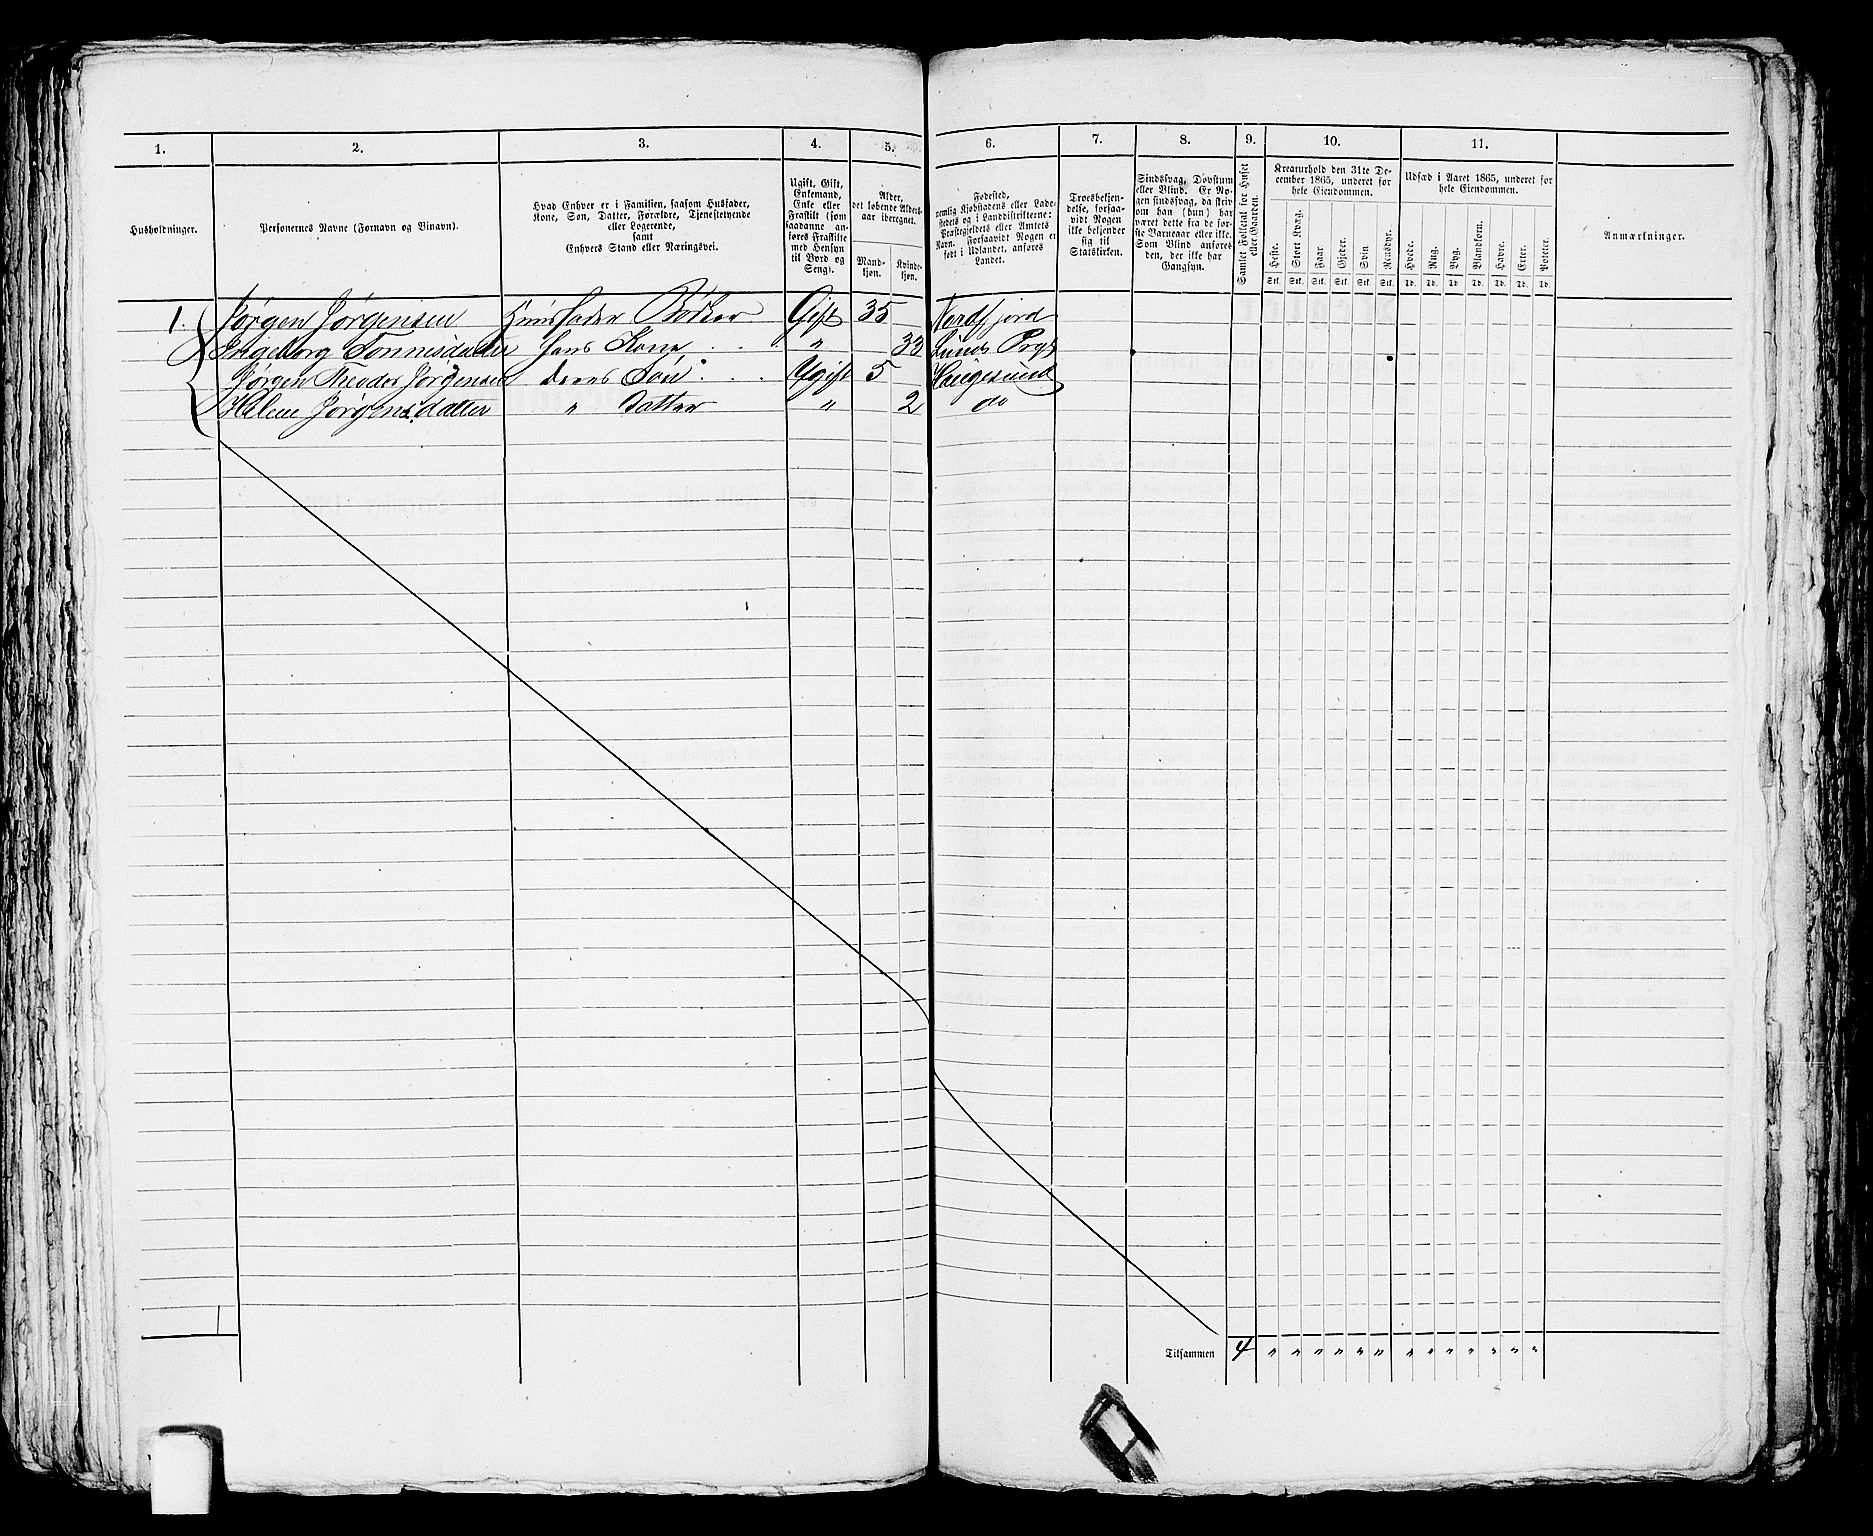 1. 2. 3. 4. 5. 6. 7. 8. 9. 10. 11.
Husholdninger.
Personernes Navne (Fornavn og Binavn).
Hvad Enhver er i Familien, saasom Husfader,
Kone, Søn, Datter, Forældre, Tjenestetyende
eller Logerende,
samt
Enhvers Stand eller Næringsvei.
Ugift, Gift,
Enkemand,
Enke eller
Fraskilt (som
saadanne an-
føres Fraskilte
med Hensyn
til Bord og
Seng).
Alder,
det løbende Alders-
aar iberegnet.
Mand-
kjøn.
Kvinde-
kjøn.
Fødested,
nemlig Kjøbstadens eller Lade-
stedets og i Landdistrikterne:
Præstegjeldets eller Amtets
Navn. Forsaavidt Nogen er
født i Udlandet, anføres
Landet.
Troesbekjen-
delse, forsaa-
vidt Nogen
ikke bekjender
sig til
Statskirken.
Sindssvag, Døvstum
eller Blind. Er No-
gen sindssvag, da skriv
om han (hun) har
været dette fra de før-
ste Barneaar eller ikke.
Som Blind anføres
den, der ikke har
Gangsyn.
Samlet Folketal for Huset
eller Gaarden.
Kreaturhold den 31te De-
cember 1865, underet for
hele Eiendommen.
Heste. Stort Kvæg. Faar. Gjeder. Svin Rensdyr.
Stk. Stk. Stk. Stk. Stk. Stk.
Udsæd i Aaret 1865, underet for
hele Eiendommen.
Hvede. Rug. Byg. Blandkorn. Havre. Erter. Poteter.
Td. Td. Td. Td. Td. Td. Td.
Anmærkninger.
1. Jørgen Jørgensen Huusfader Bødker Gift 35 Nordfjord
Ingeborg Tønnisdatter hans Kone „ 33 Lunds Prgj
Jørgen Theodor Jørgensen deres Søn Ugift 5 Haugesund
Helene Jørgensdatter „ Datter „ 2 do
Tilsammen 4 „ „ „ „ „ „ „ „ „ „ „ „ „